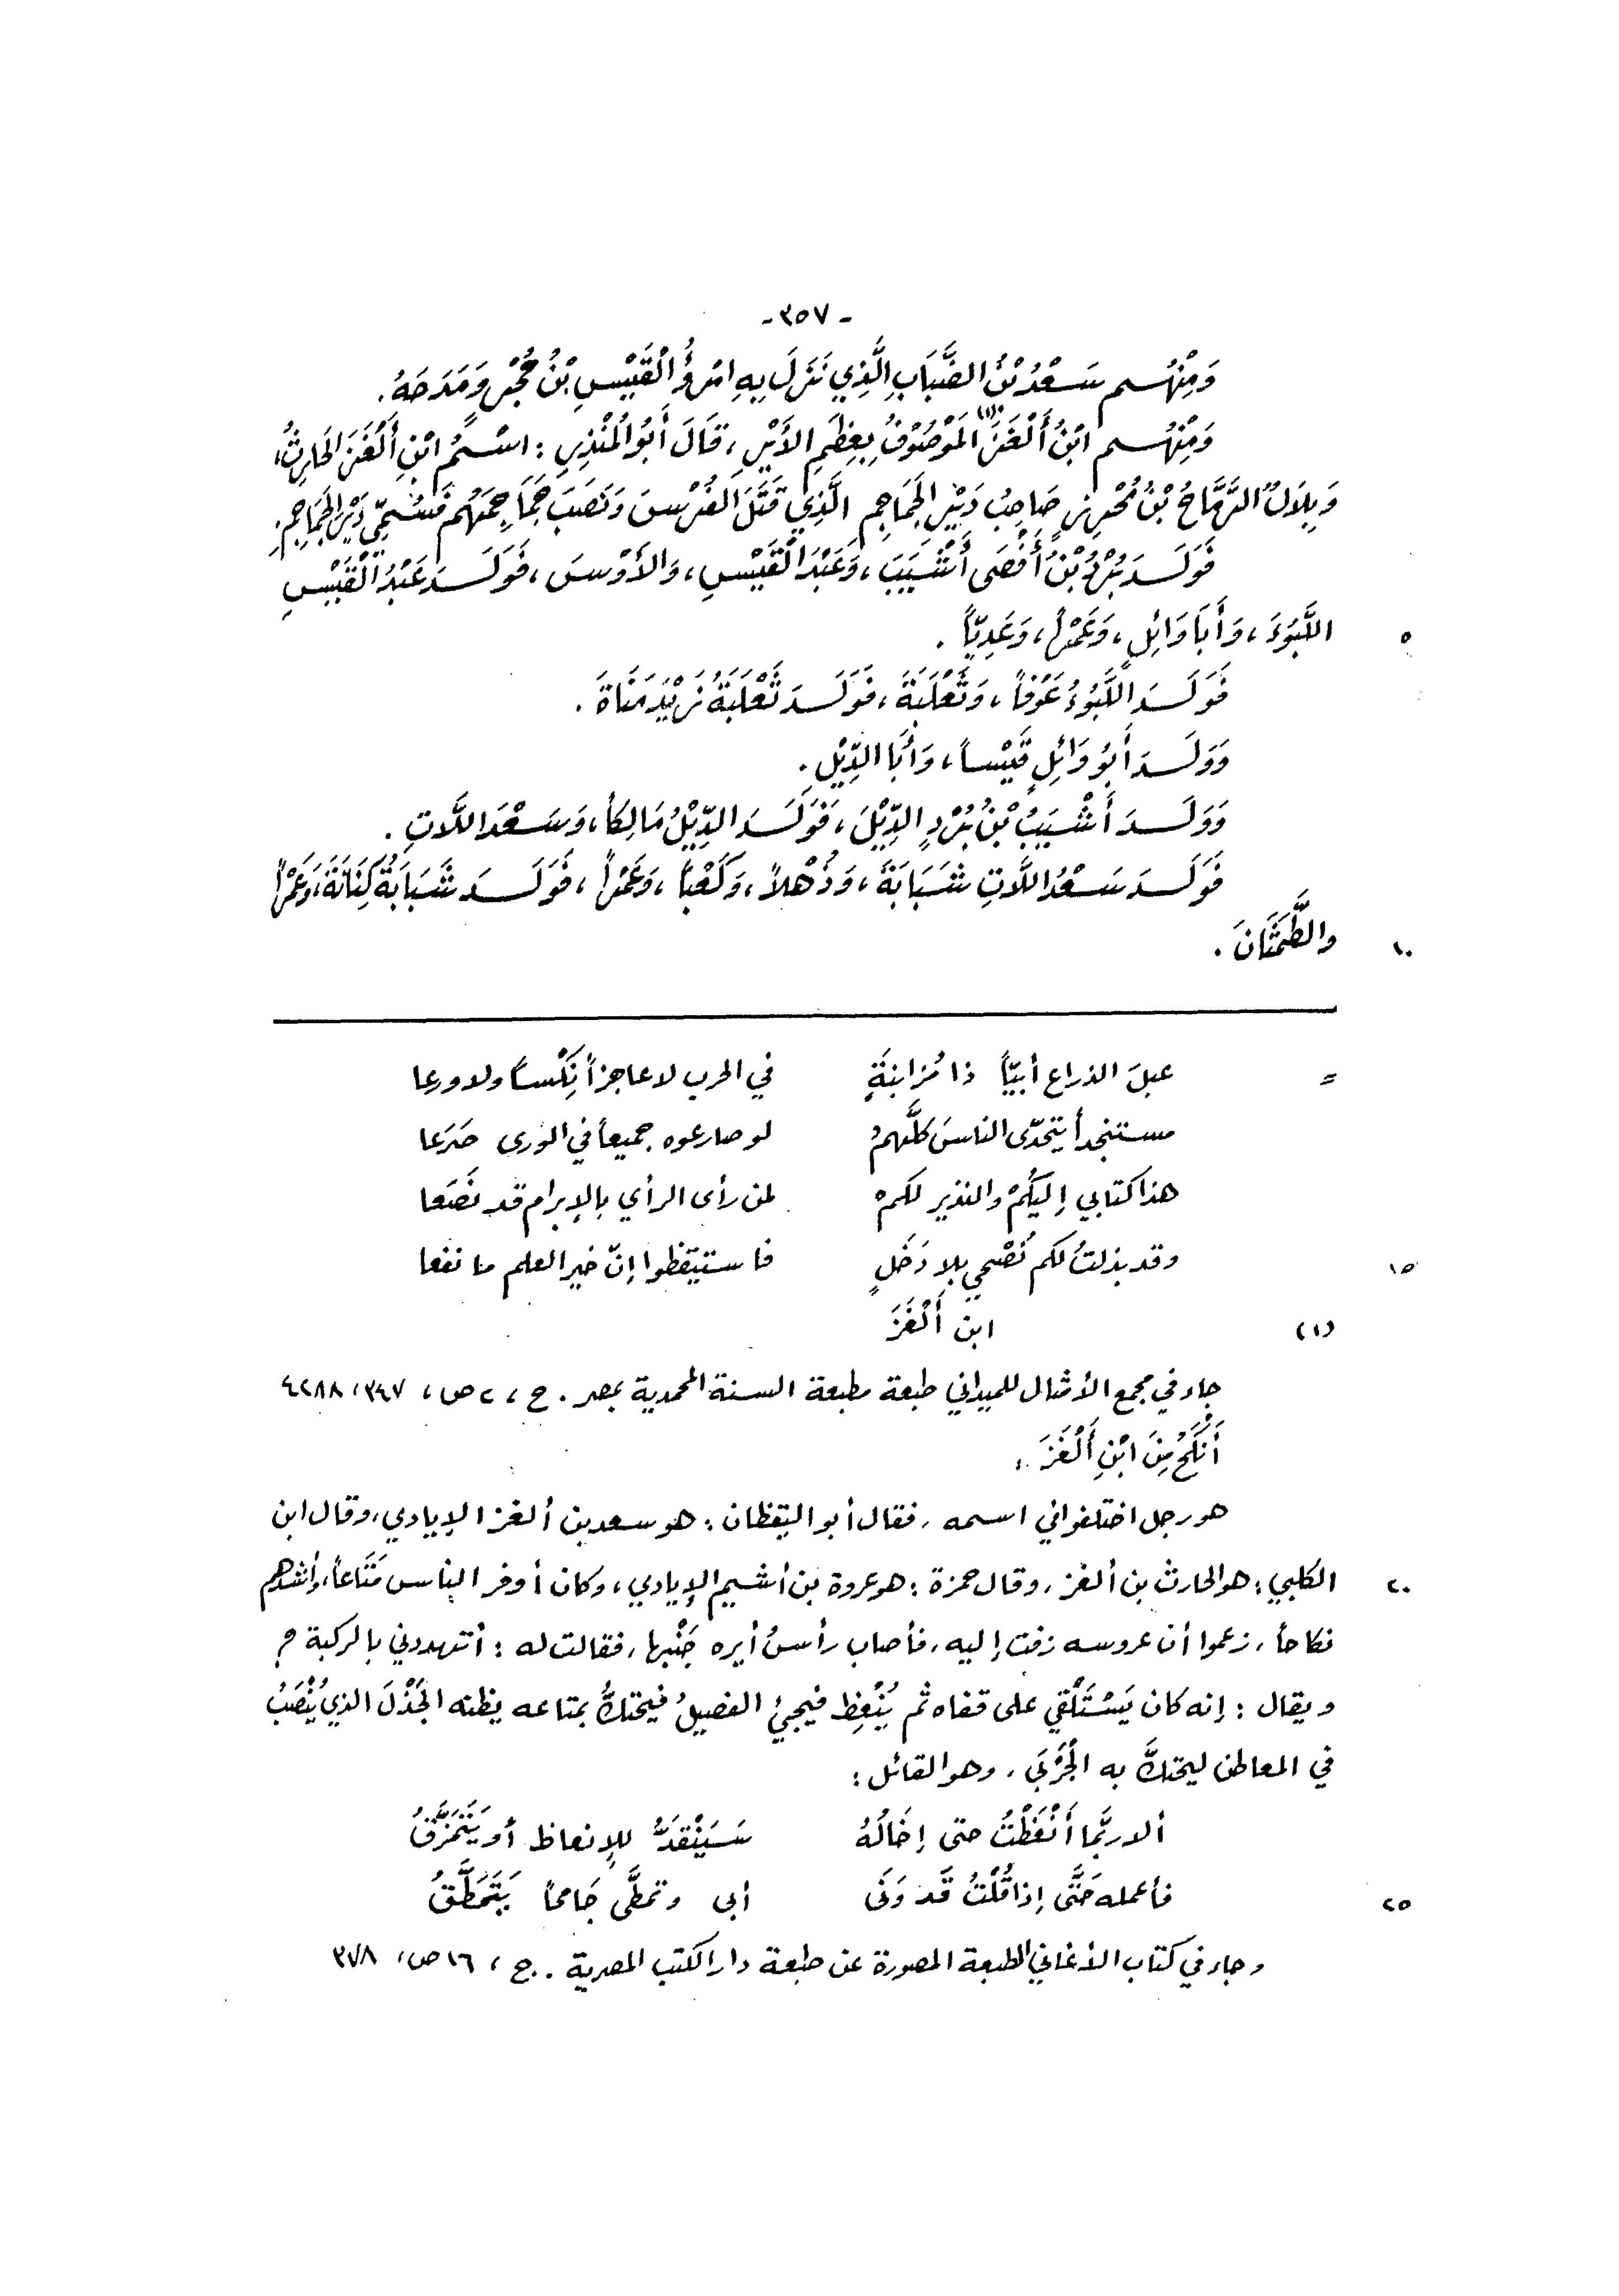 - ٣٥٧ -
وَمِنْهُم سَعْدُ بْنُ الضَّبَابِ الَّذِي نَزَلَ بِهِ امْرُؤُ الْقَيْسِ بْنُ حُجْرٍ وَمَدَحَهُ .
وَمِنْهُم ابْنُ أَلْغَزَ (١) المَوْصُوْفُ بِعِظَمِ الأَيْرِ ، قَالَ أَبُو الْمُنْذِرِ : اسْمُ ابْنِ أَلْغَزَ الحَارِثُ ،
وَبِلَالٌ الرَّمَّاحُ بْنُ مُحْرِزٍ صَاحِبُ دَيْرِ الجَمَاجِمِ الَّذِي قَتَلَ الفُرْسَ وَنَصَبَ جَمَاجِمَهُم فَسُمِّيَ دَيْرَ الجَمَاجِمِ .
فَوَلَدَ بُرْدُ بْنُ أَفْصَى أَشْيَبَ ، وَعَبْدَ الْقَيْسِ ، وَالأَوْسَ ، فَوَلَدَ عَبْدُ الْقَيْسِ
٥ اللَّبُوءَ ، وَأَبَا وَائِلٍ ، وَعَمْراً ، وَعَدِيّاً .
فَوَلَدَ اللَّبُوءُ عَوْفاً ، وَثَعْلَبَةَ ، فَوَلَدَ ثَعْلَبَةُ زَيْدَ مَنَاةَ .
وَوَلَدَ أَبُو وَائِلٍ قَيْساً ، وَأَبَا الدِّيْلِ .
وَوَلَدَ أَشْيَبُ بْنُ بُرْدٍ الدِّيْلَ ، فَوَلَدَ الدِّيْلُ مَالِكاً ، وَسَعْدَ اللَّاتِ .
فَوَلَدَ سَعْدُ اللَّاتِ شَبَابَةَ ، وَذُهْلاً ، وَكَعْباً ، وَعَمْراً ، فَوَلَدَ شَبَابَةُ كِنَانَةَ ، وَعَمْراً
١٠ والطَّمَثَانَ .
= عبلَ الذراع أبيّاً ذا مُزابنةٍ في الحرب لا عاجزاً نِكْساً ولا ورعا
مستنجداً يتحدّى الناسَ كلَّهمُ لو صارعوه جميعاً في الورى صَرَعا
هذا كتابي إليكُمْ والنذير لكمْ لمن رأى الرأي بالإبرام قد نَصَعا
١٥ وقد بذلتُ لكم نُصْحي بلا دَخَلٍ فاستيقظوا إنّ خير العلم ما نفعا
(١) ابن أَلْغَزَ
جاء في مجمع الأمثال للميداني طبعة مطبعة السنة المحمدية بمصر . ج ، ٢ ص ، ٣٤٧ ، ٤٢٨٨
أَنْكَحُ مِنَ ابْنِ أَلْغَزَ .
هو رجل اختلفوا في اسمه ، فقال أبو اليقظان : هو سعد بن ألغز الإيادي ، وقال ابن
٢٠ الكلبي : هو الحارث بن ألغز ، وقال حمزة : هو عروة بن أشيم الإيادي ، وكان أوفر الناس مَتَاعاً ، وأشدهم
نكاحاً ، زعموا أن عروسه زفت إليه ، فأصاب رأسُ أيره جَنْبها ، فقالت له : أتهددني بالركبة ؟
ويقال : إنه كان يَسْتَلْقي على قفاه ثم يُنْعِظ فيجيءُ الفصيلُ فيحتكُّ بمتاعه يظنه الجَذْلَ الذي يُنْصَبُ
في المعاطن ليحتكَّ به الْجَرْبَى ، وهو القائل :
ألا ربَّما أَنْعَظْتُ حتى إِخَالُهُ سَيَنْقَدُّ للإنعاظ أو يَتَمَزَّقُ
٢٥ فأعمله حَتَّى إذا قُلْتُ قَد وَنَى أبى وتمطَّى جَامحاً يَتَمَطَّقُ
وجاء في كتاب الأغاني الطبعة المصورة عن طبعة دار الكتب المصرية . ج ، ١٦ ص ، ٣٧٨